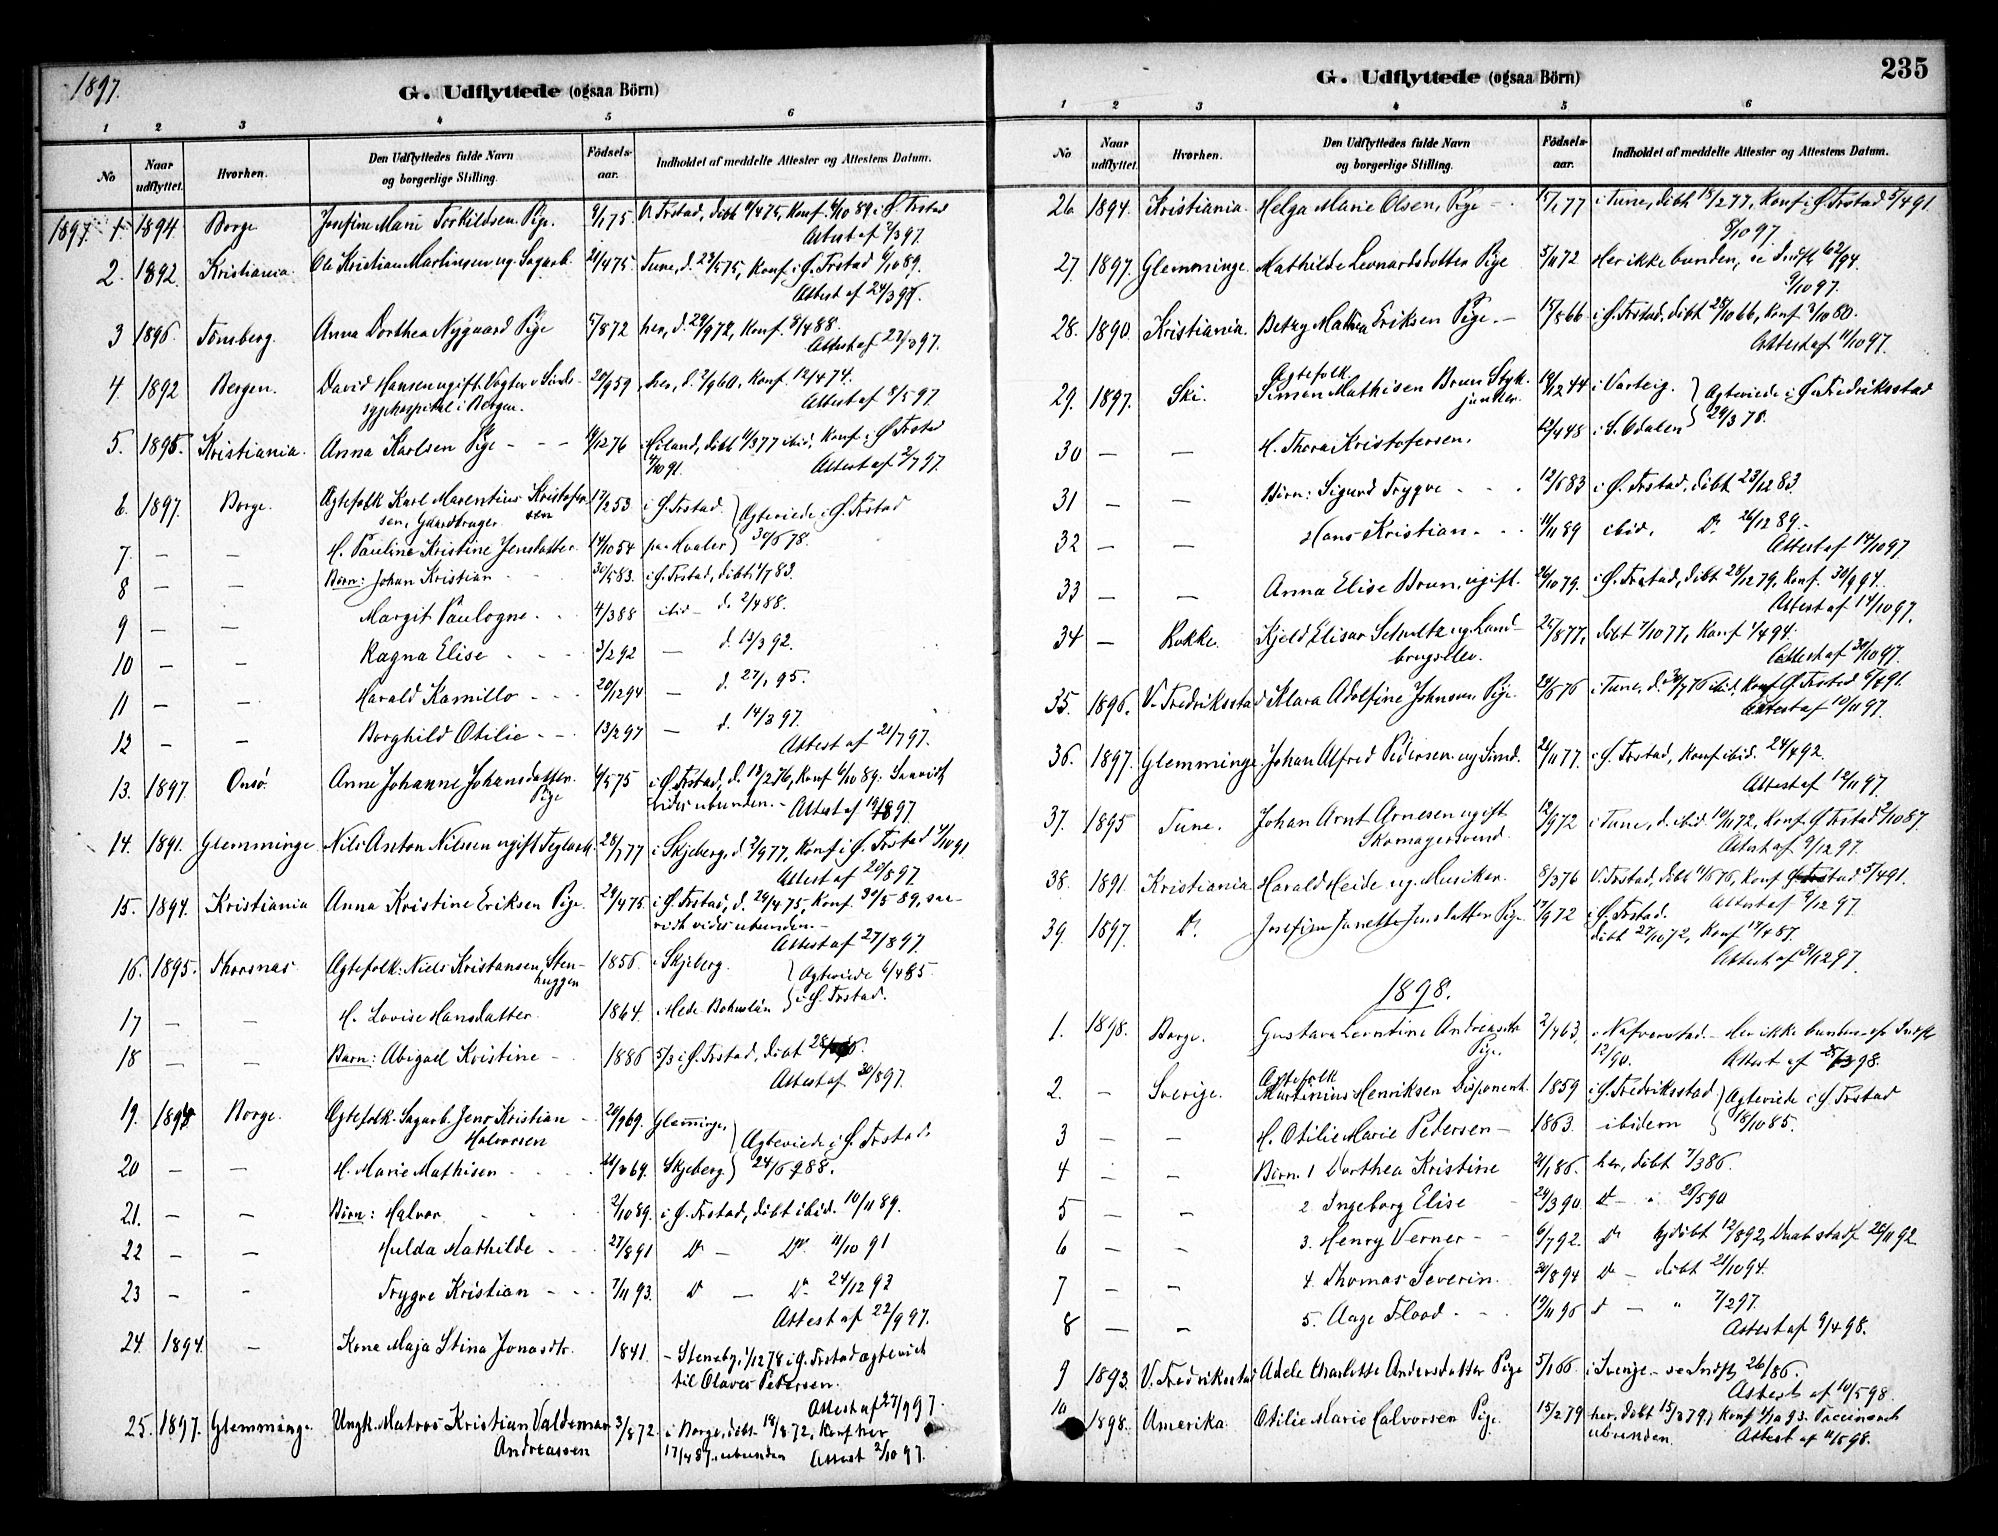 1897.
G. Udflyttede (ogsaa Börn)
1 2 3 4 5 6
No
Naar udflyttet.
Hvorhen.
Den Udflyttedes fulde Navn og borgerlige Stilling.
Födsels-aar.
Indholdet af meddelte Attester og Attestens Datum.
1897. 1. 1894 Borge Josefine Marie Torkildsen Pige. 9/1 75. V. Frstad, döbt 11/4 75, Konf. 6/10 89 i Ø. Frstad
Attest af 2/3 97.
2. 1892. Kristiania. Ole Kristian Martinsen ug. Sagarb. 21/4 75 Tune, d. 23/5 75, Konf. i Ø. Frstad 6/10 89.
Attest af 24/3 97.
3 1896. Tönsberg. Anna Dorthea Nygaard Pige 17/8 72 her, d. 29/9 72, Konf. 8/4 88.
Attest af 23/3 97.
4 1892 Bergen. David Hansen ugift. Vogter v. Sinds- 20/9 59 her, d. 2/9 60, Konf. 12/4 74.
sygehospital i Bergen. Attest af 8/5 97
5. 1895. Kristiania. Anna Karlsen Pige - - - 19/12 76 i Höland, döbt 11/3 77 ibid. Konf. i Ø. Frstad
4/10 91. Attest af 2/7 97.
6. 1897. Borge. Ægtefolk Karl Marentius Kristofer- 17/2 53 i Ø. Frstad. } Ægteviede i Ø. Frstad
sen, Gaardbruger
7. — — H. Pauline Kristine Jensdatter. 14/10 54 paa Hvaler } 30/5 78.
8 — — Börn: Johan Kristian 30/5 83. i Ø. Frstad, döbt 1/7 83.
9 — — Margit Paulogne 4/3 88 ibid — d. 2/4 88.
10 — — Ragna Elise 3/2 92 — d. 13/3 92.
11 — — Harald Kamillo 20/12 94 — d. 27/1 95.
12 — — Borghild Otilie 13/2 97 — d. 14/3 97.
Attest af 21/7 97.
13. 1897. Onsö. Anne Johanne Johansdatter. 9/5 75 i Ø. Frstad, d. 13/2 76, Konf 6/10 89. Saavidt
Pige vides ubunden. — Attest af 19/8 97.
14. 1891. Glemminge Nils Anton Nilsen ugift Teglark. 28/7 77 i Skjeberg, d. 2/9 77, Konf i Ø. Frstad 4/10 91
Attest af 20/8 97.
15. 1894. Kristiania Anna Kristine Eriksen Pige. 29/4 75 i Ø. Frstad, d. 24/4 75, Konf. 30/5 89, saa-
vidt vides ubunden.
Attest af 27/8 97.
16. 1895. Thorsnæs Ægtefolk: Niels Kristansen, Sten- 1856 i Skjeberg. } Ægteviede 6/4 85.
huggen
17 — — H. Lovise Hansdatter. 1864. Hede Bohuslän } i Ø. Frstad.
18 — — Barn: Abigael Kristine 1886 5/3 i Ø. Frstad, döbt
Attest af 30/8 97.
19. 1894 Borge. Ægtefolk. Sagarb. Jens Kristian 20/9 69. Glemminge } Ægteviede i Ø. Frstad.
Halvorsen
20 — — H. Marie Mathisen 69. Skjeberg } 24/6 88.
21. — — Börn: Halvor 2/10 89. i Ø. Frstad, döbt ibid. 10/11 89.
22 — — Hulda Mathilde 27/8 91 Do — Do 11/10 91
23 — — Trygve Kristian 7/11 93. Do — Do 24/12 93
Attest af 22/9 97.
24. 1894. — Kone Maja Stina Jonasdtr. 1841. — Stenaby, 1/12 78 i Ø. Frstad ægteviet
til Olaves Petersen.
Attest af 27/9 97.
25. 1897. Glemminge. Ungk. Matros Kristian Valdemar 3/8 72 i Borge, döbt. 18/8 72, Konf her
Andreassen 17/4 87. ubunden Attest 2/10 97.
235
G. Udflyttede (ogsaa Börn)
1 2 3 4 5 6
No
Naar udflyttet.
Hvorhen.
Den Udflyttedes fulde Navn og borgerlige Stilling.
Födsels-aar.
Indholdet af meddelte Attester og Attestens Datum.
26. 1894. Kristiania. Helga Marie Olsen, Pige 15/1 77 i Tune, döbt 18/2 77, Konf i Ø. Frstad 5/4 91.
8/10 97.
27. 1897. Glemminge. Mathilde Leonardsdotter Pige 5/11 72 Her ikke bunden, se Indfl. 62/94.
9/10 97.
28. 1890. Kristiania. Betzy Mathea Eriksen Pige. 15/8 66 i Ø. Frstad, döbt 28/10 66, Konf 3/10 80.
Attest af 11/10 97.
Ægtefolk.
29. 1897. Ski. Simen Mathisen Brun Styk- 19/12 44 i Varteig. } Ægteviede i Ø. Fredriksstad
junker.
30 — — H. Thora Kristofersen. 12/4 48 i S. Odalen } 29/3 78.
31 — Börn: Sigurd Trygve 12/5 83 i Ø. Frstad, döbt 23/12 83.
32 — — Hans Kristian 14/11 89 ibid. Do 26/12 89.
Attest af 14/10 97
33 — — Anna Elise Brun, ugift. 26/10 79. i Ø. Frstad, döbt 28/12 79, Konf. 30/9 94.
Attest af 14/10 97.
34 — Rokke. Kjeld Elisar Schultz ug. Land- 25/8 77, döbt 7/10 77, Konf 1/4 94.
brugselev. Attest af 30/10 97.
35. 1896. V. Fredriksstad Klara Adolfine Johnsen Pige. 24/6 76 i Tune, d. 30/7 76 ibid, Konf Ø. Frstad 5/4 91.
Attest af 10/11 97.
36. 1897. Glemminge. Johan Alfred Pedersen ug. Smed. 26/11 77. i Ø. Frstad, Konf ibid. 24/4 92.
Attest af 12/11 97.
37. 1895 Tune. Johan Arnt Arnesen ugift 12/9 72 i Tune, d. ibid. 10/11 72, Konf. Ø Frstad 2/10 87.
Skomagersvend. Attest af 9/12 97.
38. 1891. Kristiania Harald Heide ug. Musiker. 8/3 76 V. Frstad, döbt 11/5 76, Konf Ø. Frstad 5/4 91.
Attest af 9/12 97.
39. 1897. Do. Josefine Janette Jensdatter Pige. 17/9 72 i Ø. Frstad.
döbt 27/10 72, Konf 17/4 87.
Attest af 31/12 97.
1898.
1. 1898. Borge. Gustava Leontine Andreasdtr 2/7 63. i Nafverstad. — Her ikke bunden se Indfl.
Pige. 12/90. Attest af 25/3 98.
Ægtefolk
2. — Sverige. Martinius Henriksen Disponent. 1859 i Ø. Fredriksstad } Ægteviede i Ø. Frstad
3 — — H. Otilie Marie Petersen 1863. ibidem } 18/10 85.
4 — — Börn. 1 Dorthea Kristine 21/1 86. her, döbt 7/3 86.
5 — — 2 Ingeborg Elise 29/3 90. Do — " 26/5 90
6 — — 3. Henry Verner 6/7 92. Do hjdöbt 12/8 92, Daab stadf. 26/11 92
7 — 4. Thomas Severin. 30/8 94 Do — döbt 21/10 94.
8 — — 5. Aage Flood 19/11 96 d — " 7/2 97.
Attest af 9/4 98.
9 1893. V. Fredriksstad Adele Charlotte Andersdatter Pige 5/1 66 i Sverige — se Indfl. 26/86.
Attest af 10/5 98.
10 1898. Amerika. Otilie Marie Halvorsen Pige. 15/2 79 her, döbt 15/3 79, Konf 1/10 93. Vaccineret
ubunden. Attest af 11/5 98.